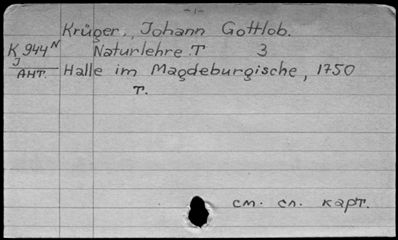 -1-
Krüger, Johann Gottlob.
K 944 N Naturlehre T 3
J
АНТ. Halle im Magdeburgische, 1750
T.
см. сл. карт.